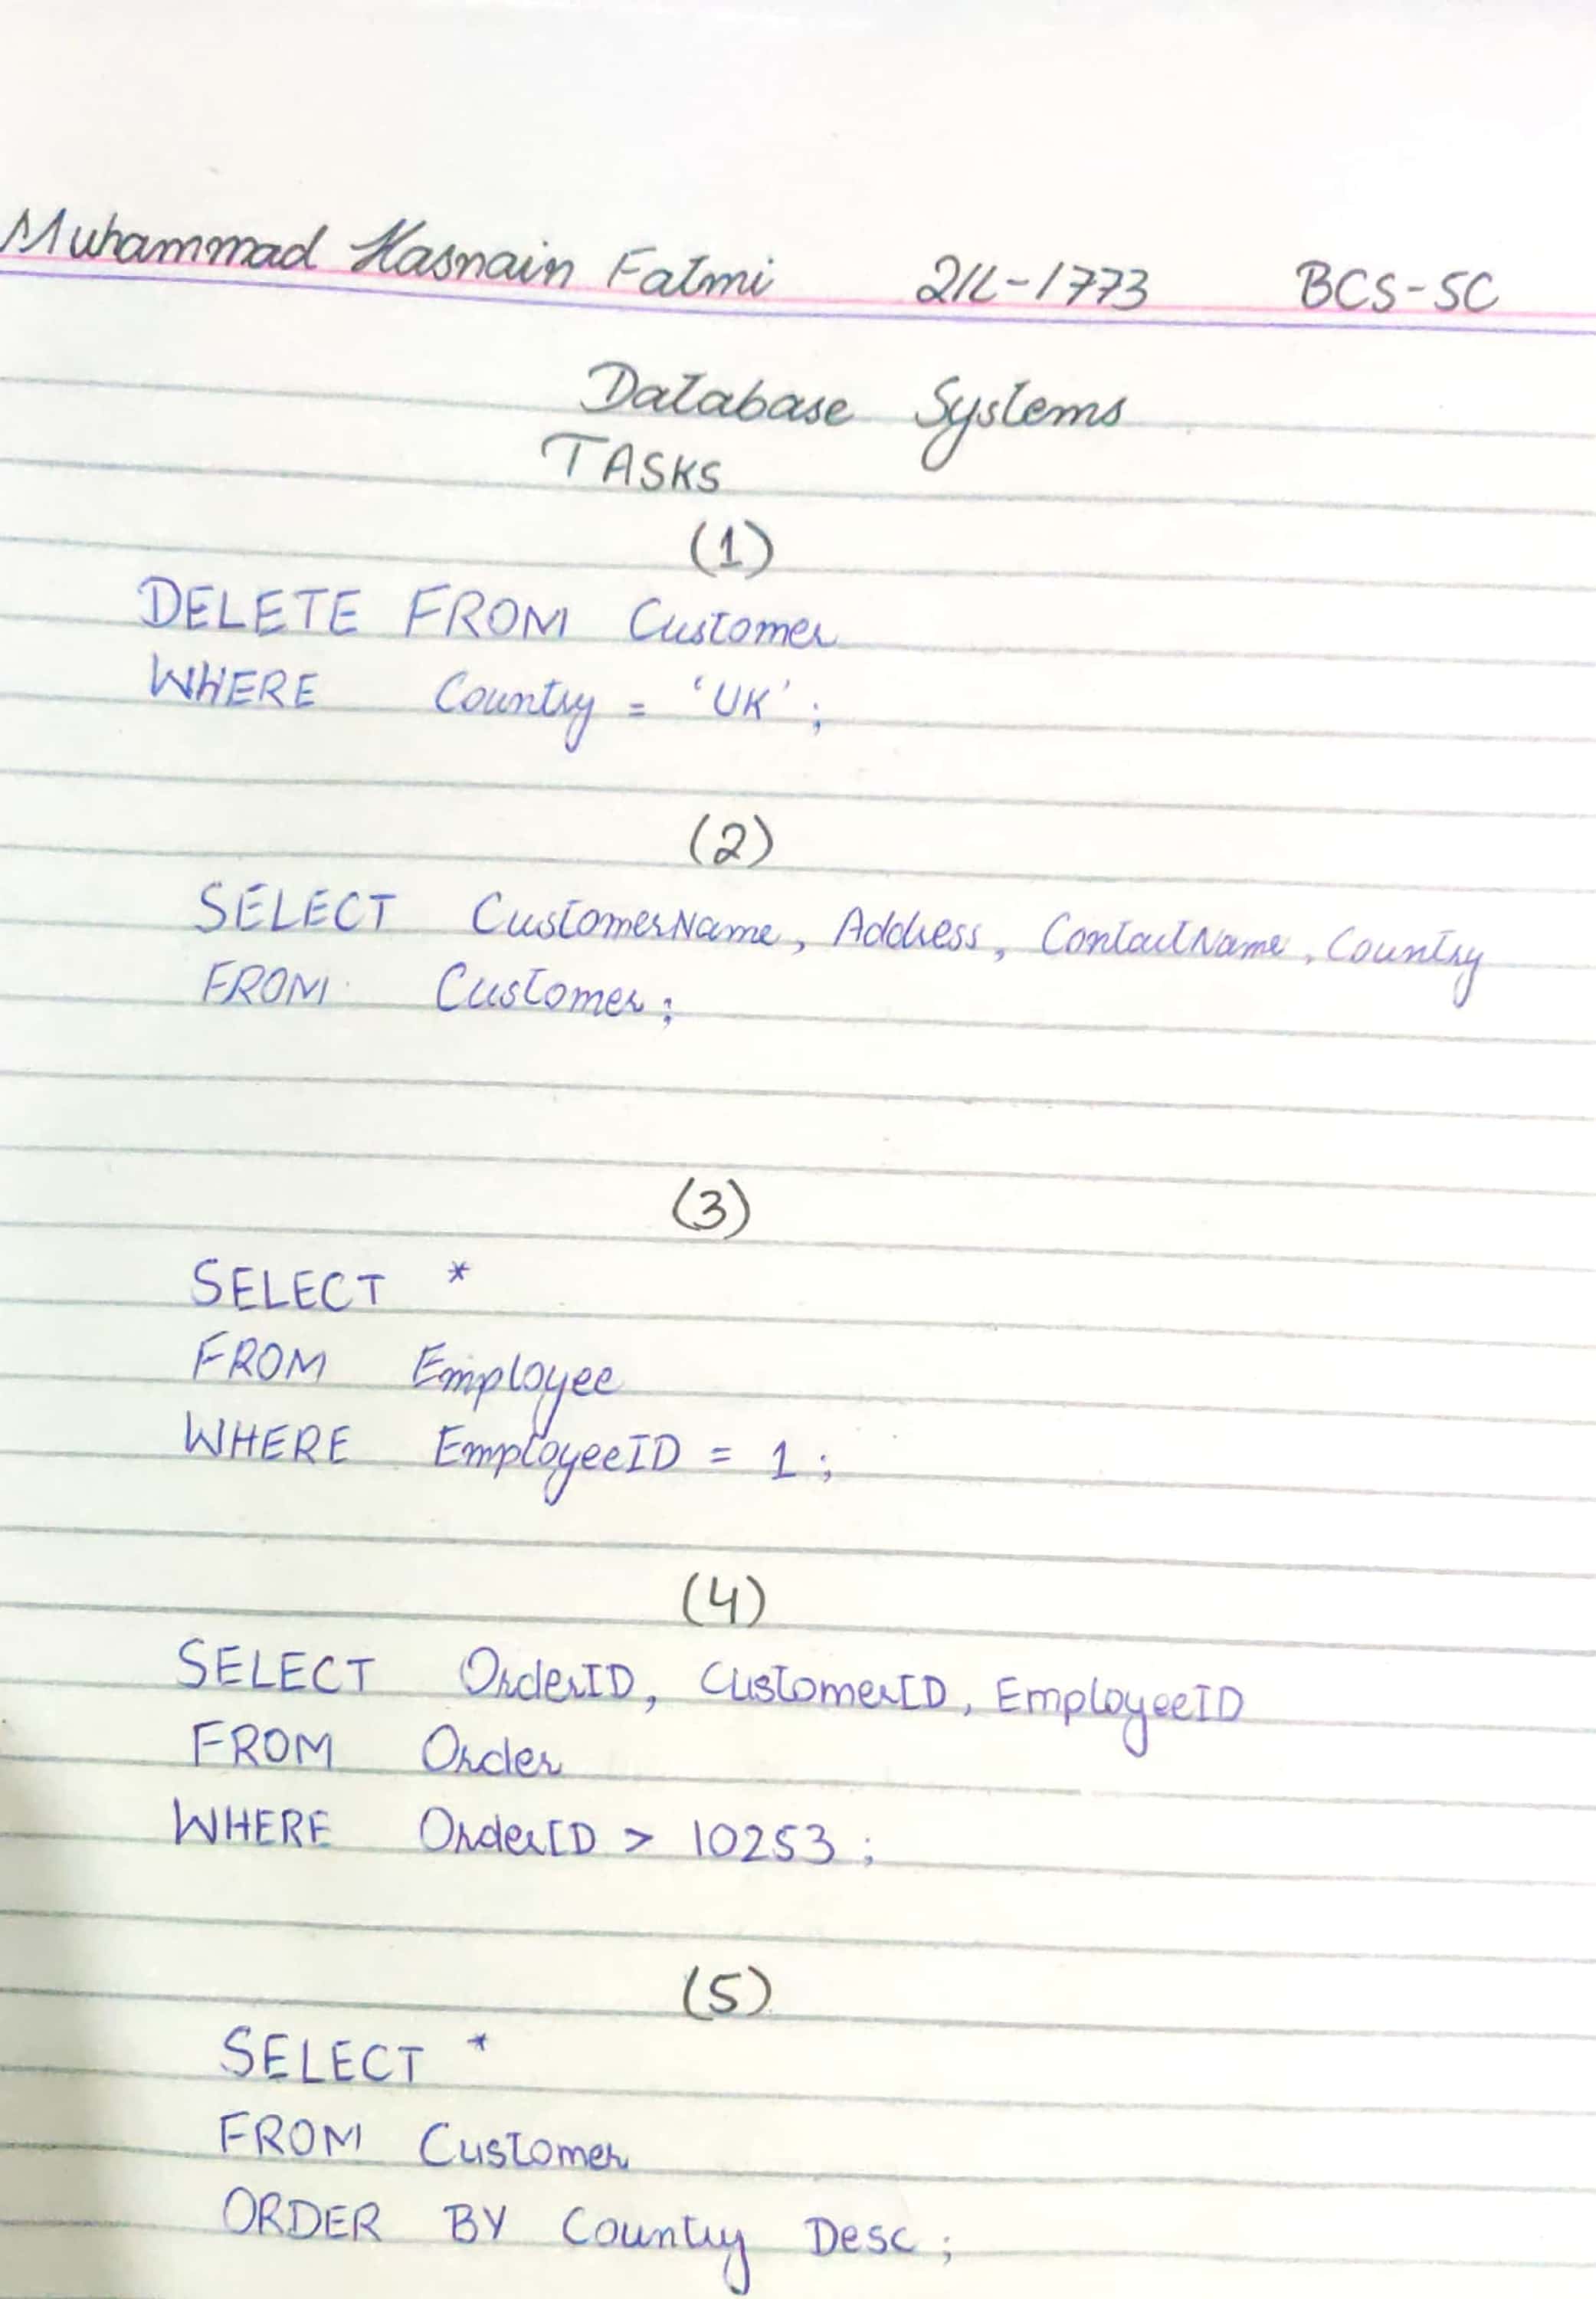 Muhammad Hasnain Fatmi 21L-1773 BCS-5C
Database Systems
TASKS
(1)
DELETE FROM Customer
WHERE Country = 'UK' ;
(2)
SELECT CustomerName, Address, ContactName, Country
FROM Customer ;
(3)
SELECT *
FROM Employee
WHERE EmployeeID = 1 ;
(4)
SELECT OrderID, CustomerID, EmployeeID
FROM Order
WHERE OrderID > 10253 ;
(5)
SELECT *
FROM Customer
ORDER BY Country Desc ;